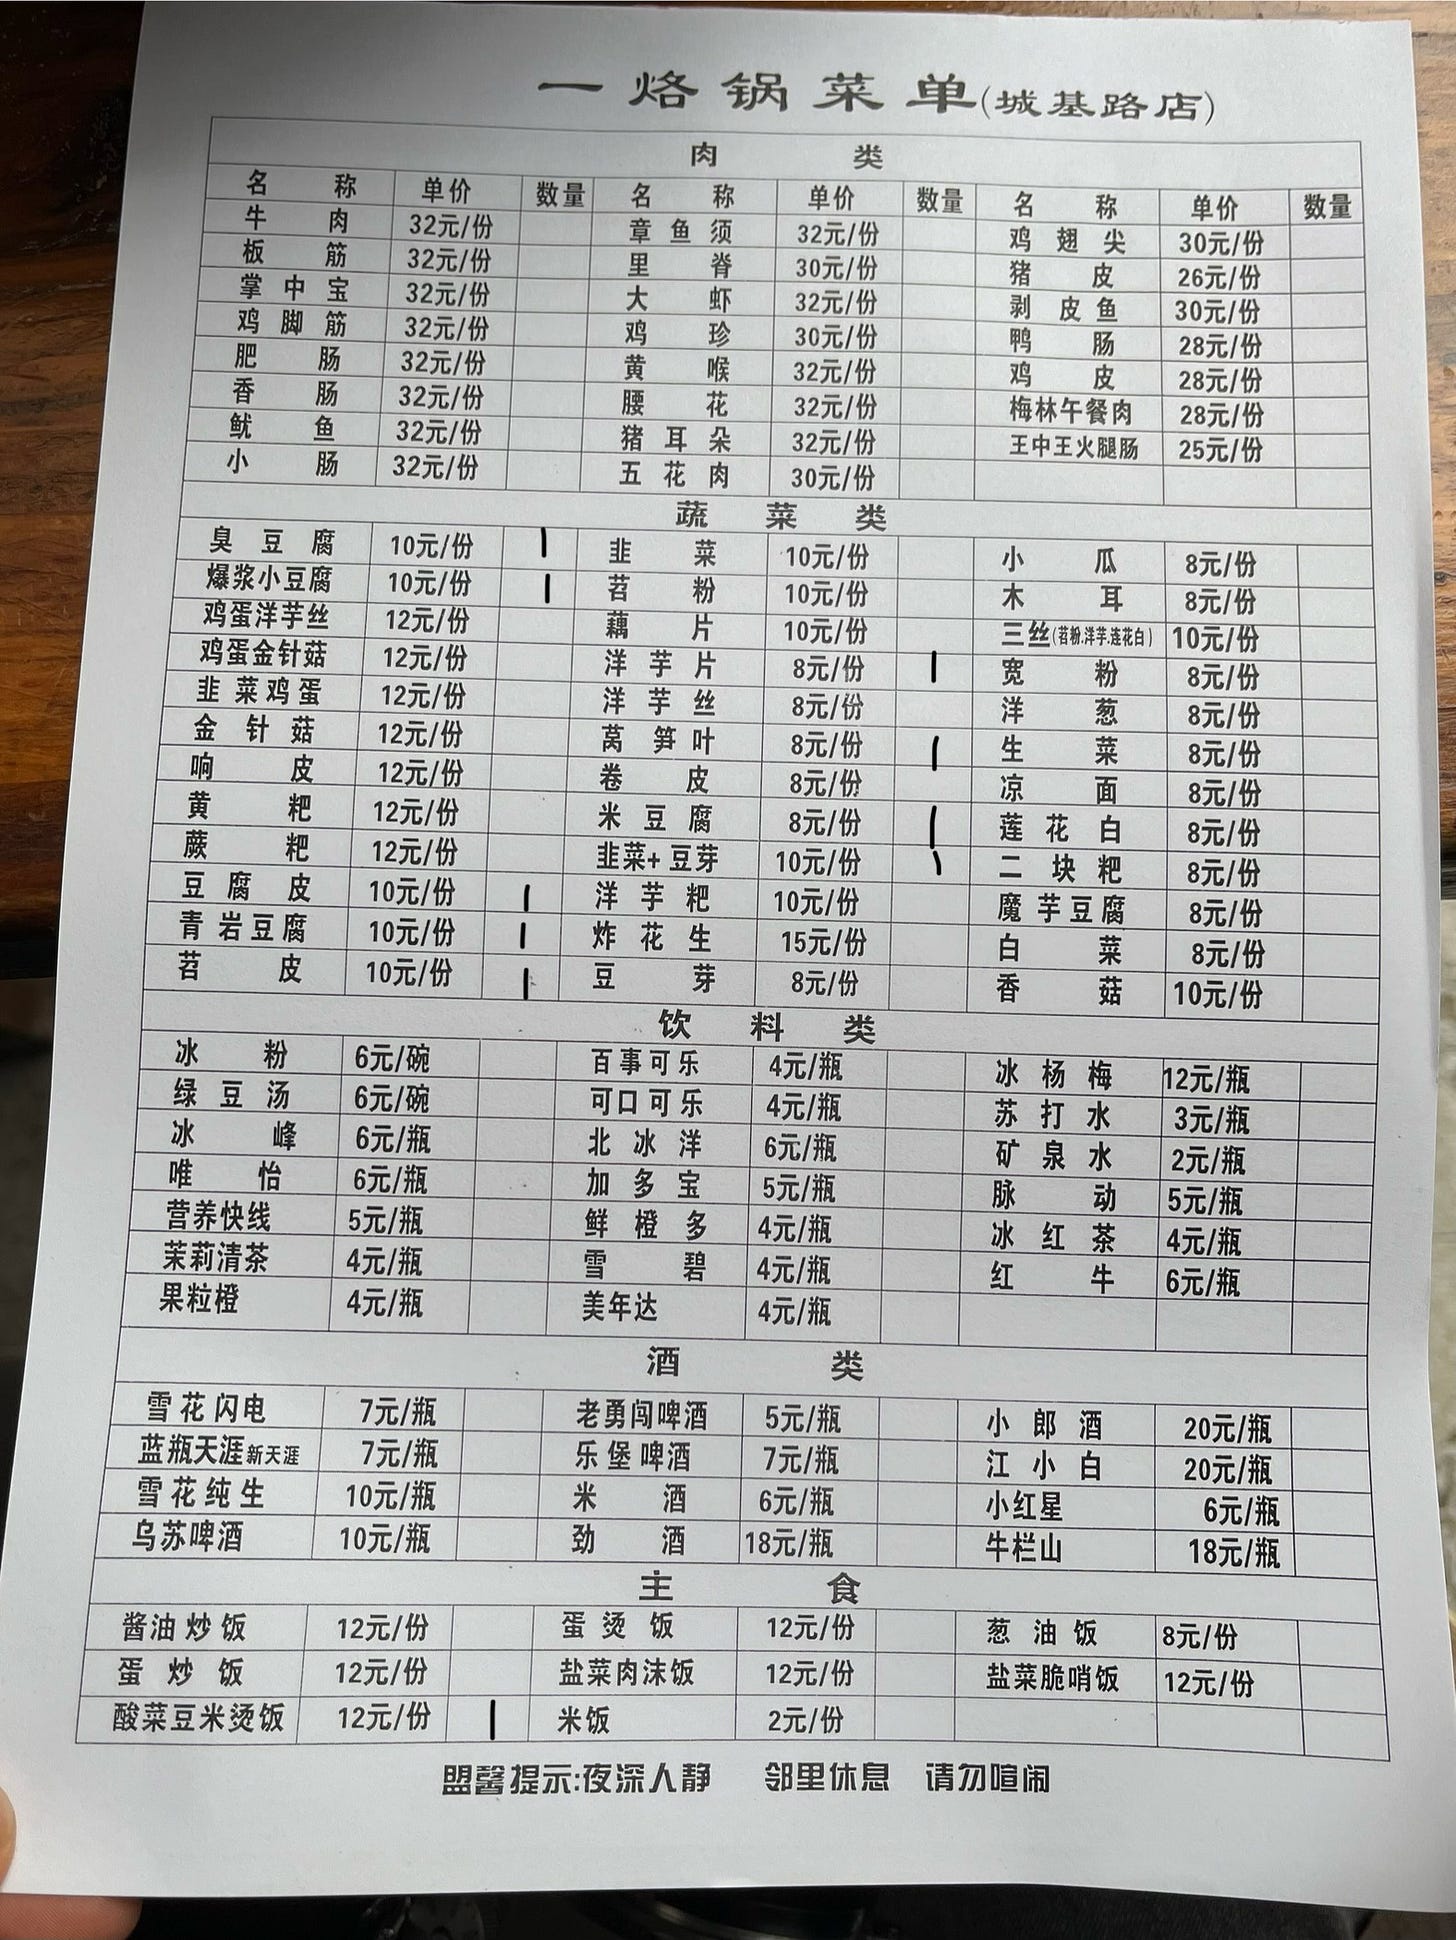 一烙锅菜单(城基路店)
肉 类
名 称 单价 数量 名 称 单价 数量 名 称 单价 数量
牛 肉 32元/份 章鱼须 32元/份 鸡翅尖 30元/份
板 筋 32元/份 里 脊 30元/份 猪 皮 26元/份
掌中宝 32元/份 大 虾 32元/份 剥皮鱼 30元/份
鸡脚筋 32元/份 鸡 珍 30元/份 鸭 肠 28元/份
肥 肠 32元/份 黄 喉 32元/份 鸡 皮 28元/份
香 肠 32元/份 腰 花 32元/份 梅林午餐肉 28元/份
鱿 鱼 32元/份 猪耳朵 32元/份 王中王火腿肠 25元/份
小 肠 32元/份 五花肉 30元/份
蔬 菜 类
臭豆腐 10元/份 | 韭 菜 10元/份 小 瓜 8元/份
爆浆小豆腐 10元/份 | 苕 粉 10元/份 木 耳 8元/份
鸡蛋洋芋丝 12元/份 藕 片 10元/份 三丝(苕粉.洋芋.连花白) 10元/份
鸡蛋金针菇 12元/份 洋芋片 8元/份 | 宽 粉 8元/份
韭菜鸡蛋 12元/份 洋芋丝 8元/份 洋 葱 8元/份
金针菇 12元/份 莴笋叶 8元/份 | 生 菜 8元/份
响 皮 12元/份 卷 皮 8元/份 凉 面 8元/份
黄 粑 12元/份 米豆腐 8元/份 | 莲花白 8元/份
蕨 粑 12元/份 韭菜+豆芽 10元/份 | 二块粑 8元/份
豆腐皮 10元/份 | 洋芋粑 10元/份 魔芋豆腐 8元/份
青岩豆腐 10元/份 | 炸花生 15元/份 白 菜 8元/份
苕 皮 10元/份 | 豆 芽 8元/份 香 菇 10元/份
饮 料 类
冰 粉 6元/碗 百事可乐 4元/瓶 冰杨梅 12元/瓶
绿豆汤 6元/碗 可口可乐 4元/瓶 苏打水 3元/瓶
冰 峰 6元/瓶 北冰洋 6元/瓶 矿泉水 2元/瓶
唯 怡 6元/瓶 加多宝 5元/瓶 脉 动 5元/瓶
营养快线 5元/瓶 鲜橙多 4元/瓶 冰红茶 4元/瓶
茉莉清茶 4元/瓶 雪 碧 4元/瓶 红 牛 6元/瓶
果粒橙 4元/瓶 美年达 4元/瓶
酒 类
雪花闪电 7元/瓶 老勇闯啤酒 5元/瓶 小郎酒 20元/瓶
蓝瓶天涯新天涯 7元/瓶 乐堡啤酒 7元/瓶 江小白 20元/瓶
雪花纯生 10元/瓶 米 酒 6元/瓶 小红星 6元/瓶
乌苏啤酒 10元/瓶 劲 酒 18元/瓶 牛栏山 18元/瓶
主 食
酱油炒饭 12元/份 蛋烫饭 12元/份 葱油饭 8元/份
蛋炒饭 12元/份 盐菜肉沫饭 12元/份 盐菜脆哨饭 12元/份
酸菜豆米烫饭 12元/份 | 米饭 2元/份
盟馨提示:夜深人静 邻里休息 请勿喧闹